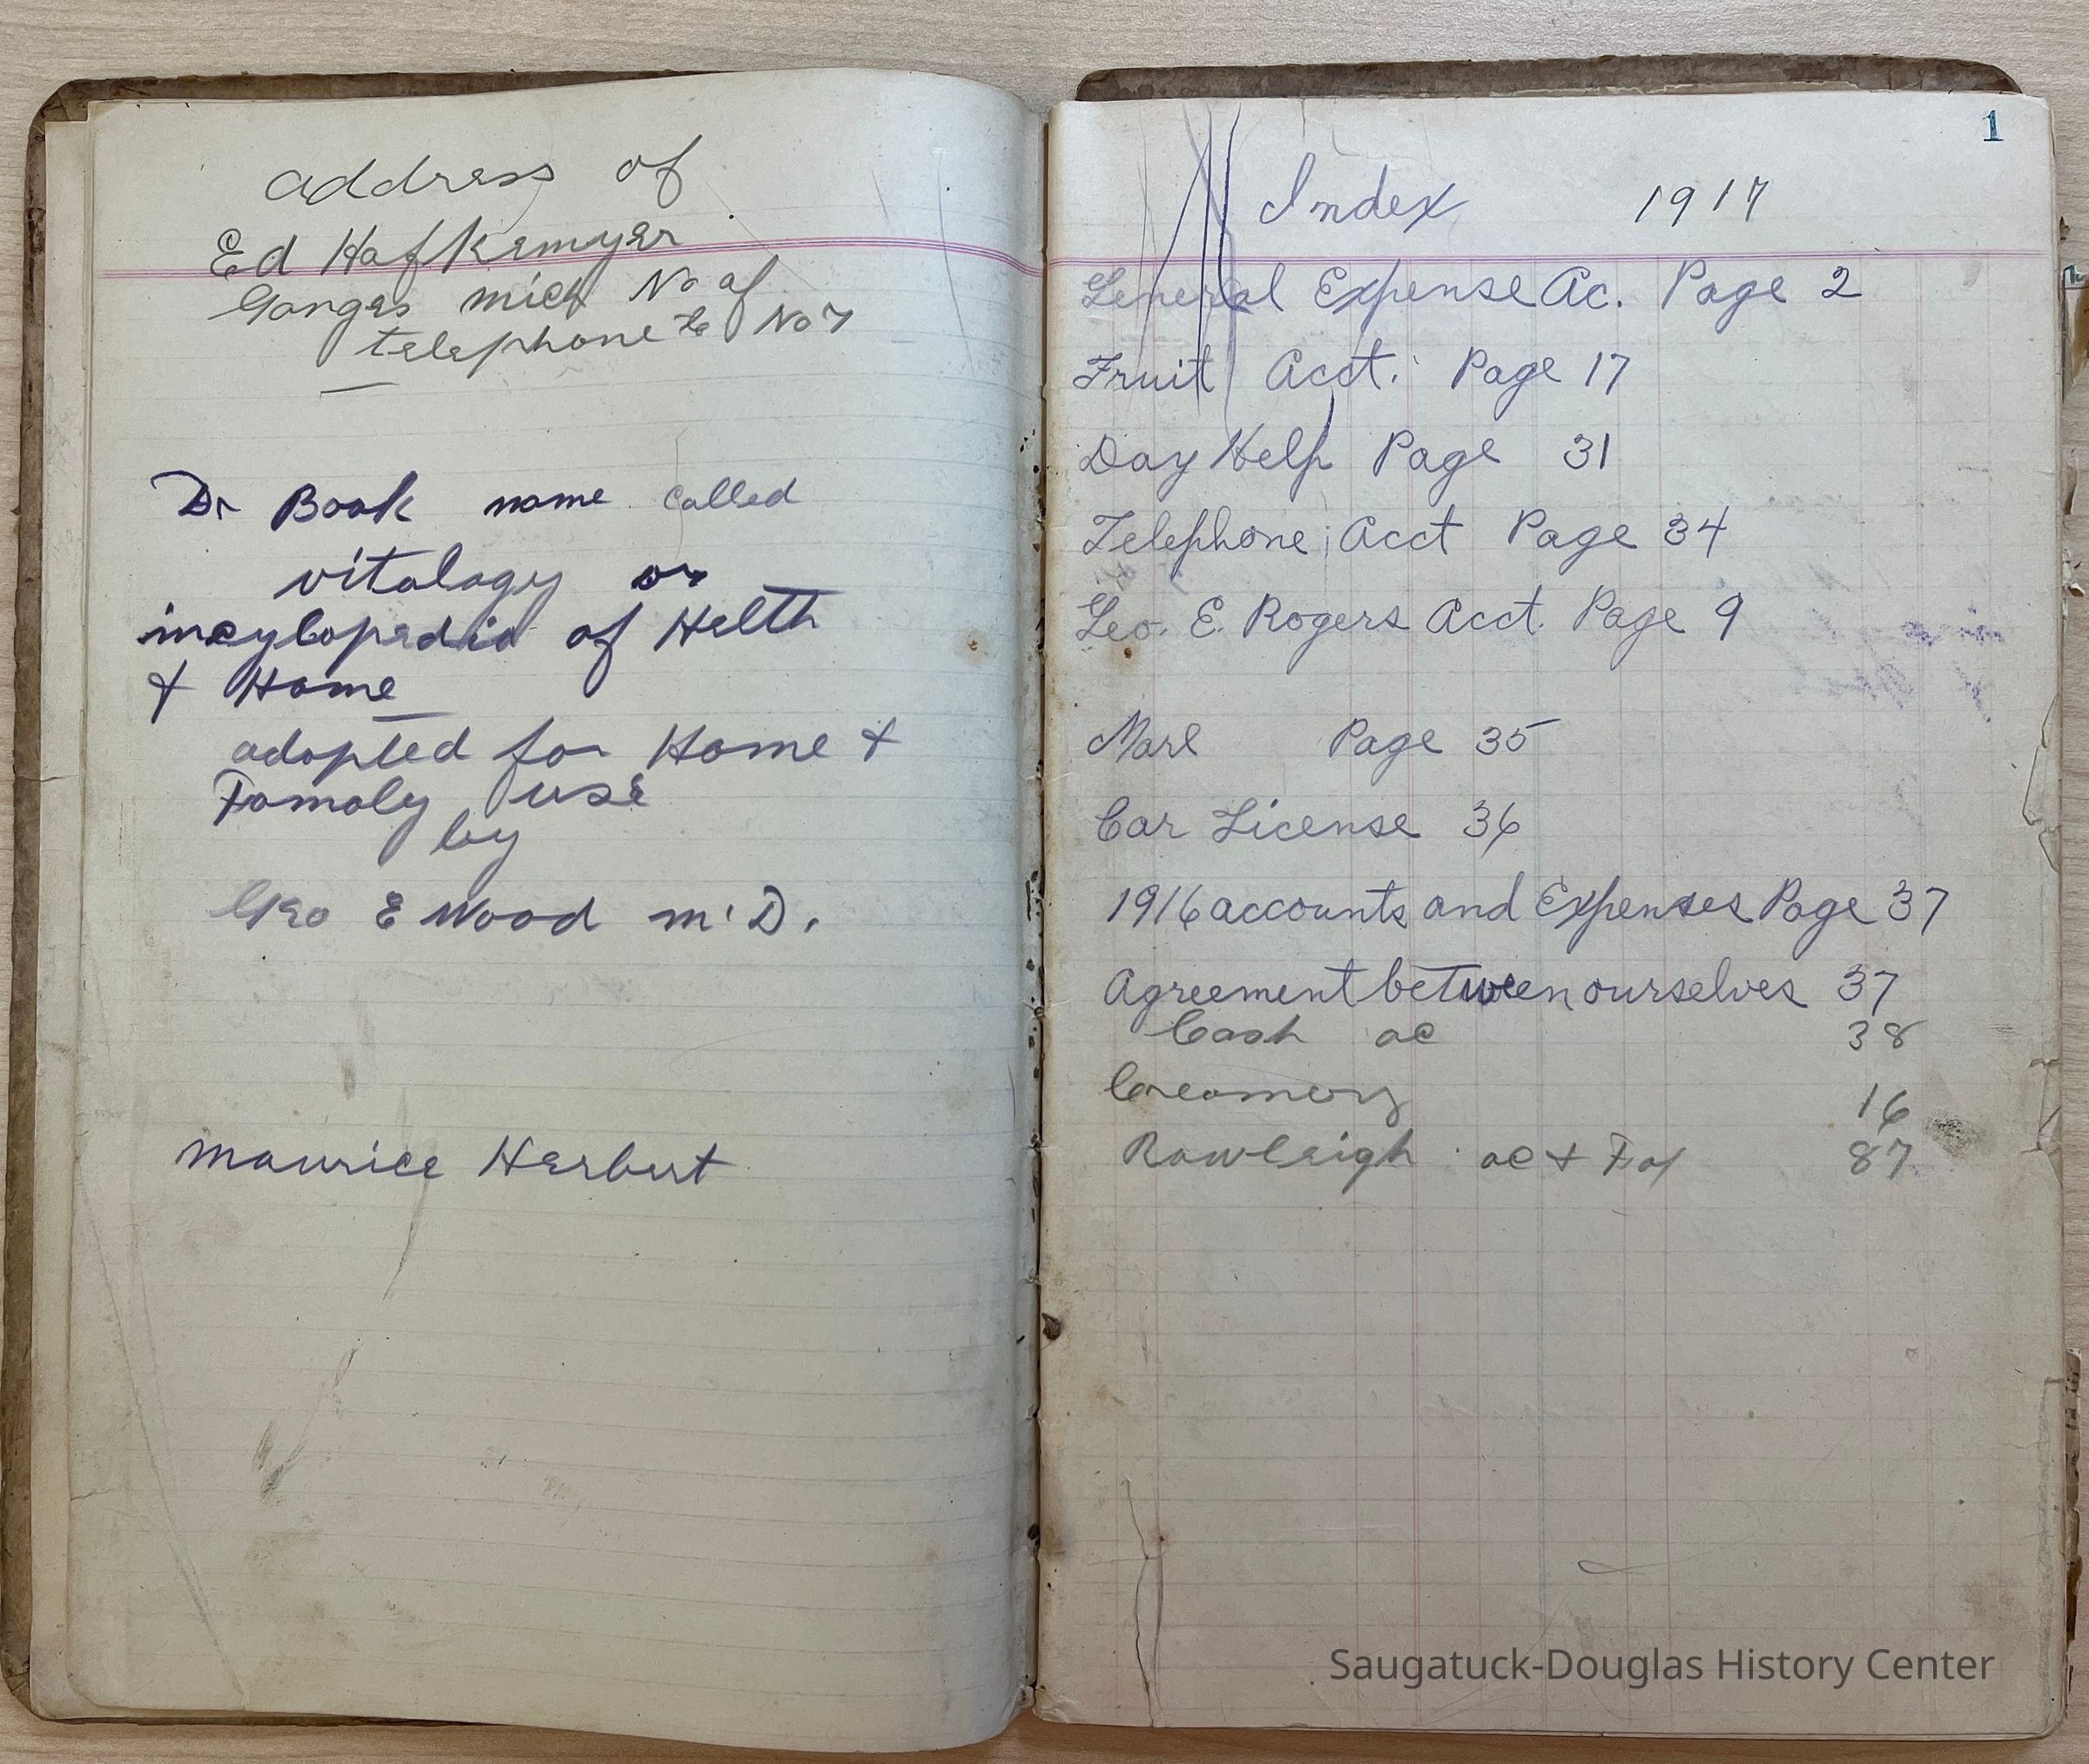 address of
Ed Hafkemyer
Ganges mich No of
telephone is No 7
Dr Book name called
vitalogy or
incylopedia of Helth
& Home
adopted for Home &
Famaly use
by
Geo E Wood m.D.
Maurice Herbert
1
Index 1917
General Expense Ac. Page 2
Fruit Acct. Page 17
Day Help Page 31
Telephone Acct Page 34
Geo. E. Rogers Acct. Page 9
Marl Page 35
Car License 36
1916 accounts and Expenses Page 37
Agreement between ourselves 37
Cash ac 38
Creamery 16
Rawleigh ac & 87
Saugatuck-Douglas History Center